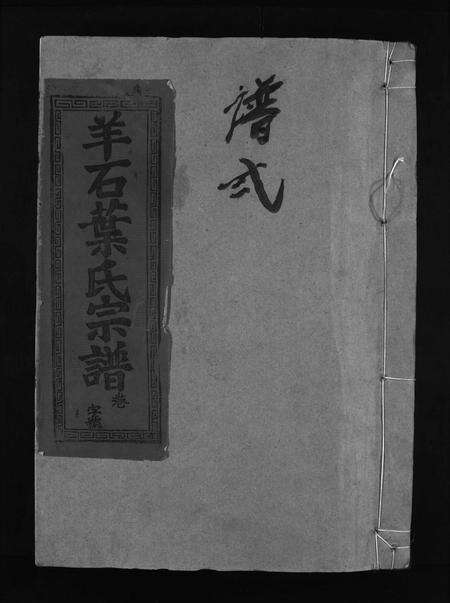 譜弍
羊石葉氏宗譜
卷
字號